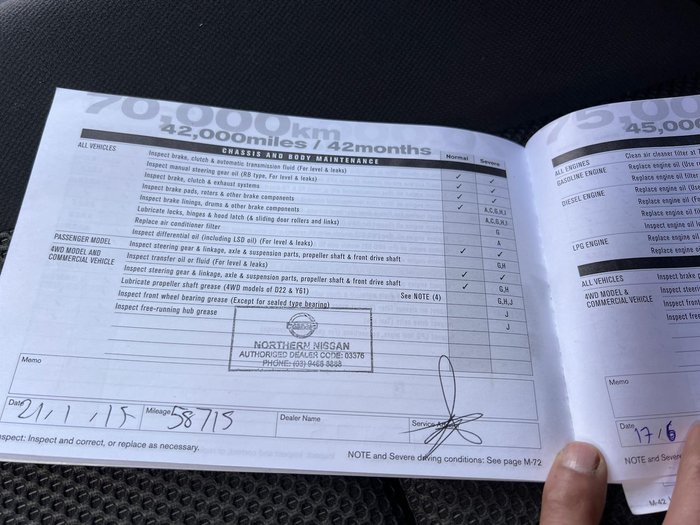 70,000km
42,000miles / 42months
CHASSIS AND BODY MAINTENANCE Normal Severe
ALL VEHICLES Inspect brake, clutch & automatic transmission fluid (For level & leaks) ✓ ✓
Inspect manual steering gear oil (RB type, For level & leaks) ✓ ✓
Inspect brake, clutch & exhaust systems ✓ ✓
Inspect brake pads, rotors & other brake components ✓ A,C,G,H,I
Inspect brake linings, drums & other brake components A,C,G,H,I
Lubricate locks, hinges & hood latch (& sliding door rollers and links) G
Replace air conditioner filter A
Inspect differential oil (including LSD oil) (For level & leaks)
PASSENGER MODEL Inspect steering gear & linkage, axle & suspension parts, propeller shaft & front drive shaft ✓ G,H
4WD MODEL AND
COMMERCIAL VEHICLE Inspect transfer oil or fluid (For level & leaks) ✓ ✓
Inspect steering gear & linkage, axle & suspension parts, propeller shaft & front drive shaft ✓ G,H
Lubricate propeller shaft grease (4WD models of D22 & Y61) See NOTE (4) G,H,J
Inspect front wheel bearing grease (Except for sealed type bearing) J
Inspect free-running hub grease J
NORTHERN NISSAN
AUTHORISED DEALER CODE: 03376
PHONE: (03) 9465 8888
Memo
Date 21/1/15 Mileage 58715 Dealer Name Service
Inspect and correct, or replace as necessary.
NOTE and Severe driving conditions: See page M-72
75,000
45,000
Clean air cleaner filter at
ALL ENGINES Replace engine oil (Use
GASOLINE ENGINE Replace engine oil filter
Replace engine oil
DIESEL ENGINE Replace engine oil
Replace engine oil filter
Inspect fuel
Replace engine oil
LPG ENGINE Replace engine oil
ALL VEHICLES Inspect brake
4WD MODEL & Inspect steering
COMMERCIAL VEHICLE Inspect free
Memo
Date 17/6
NOTE and Severe
M-42